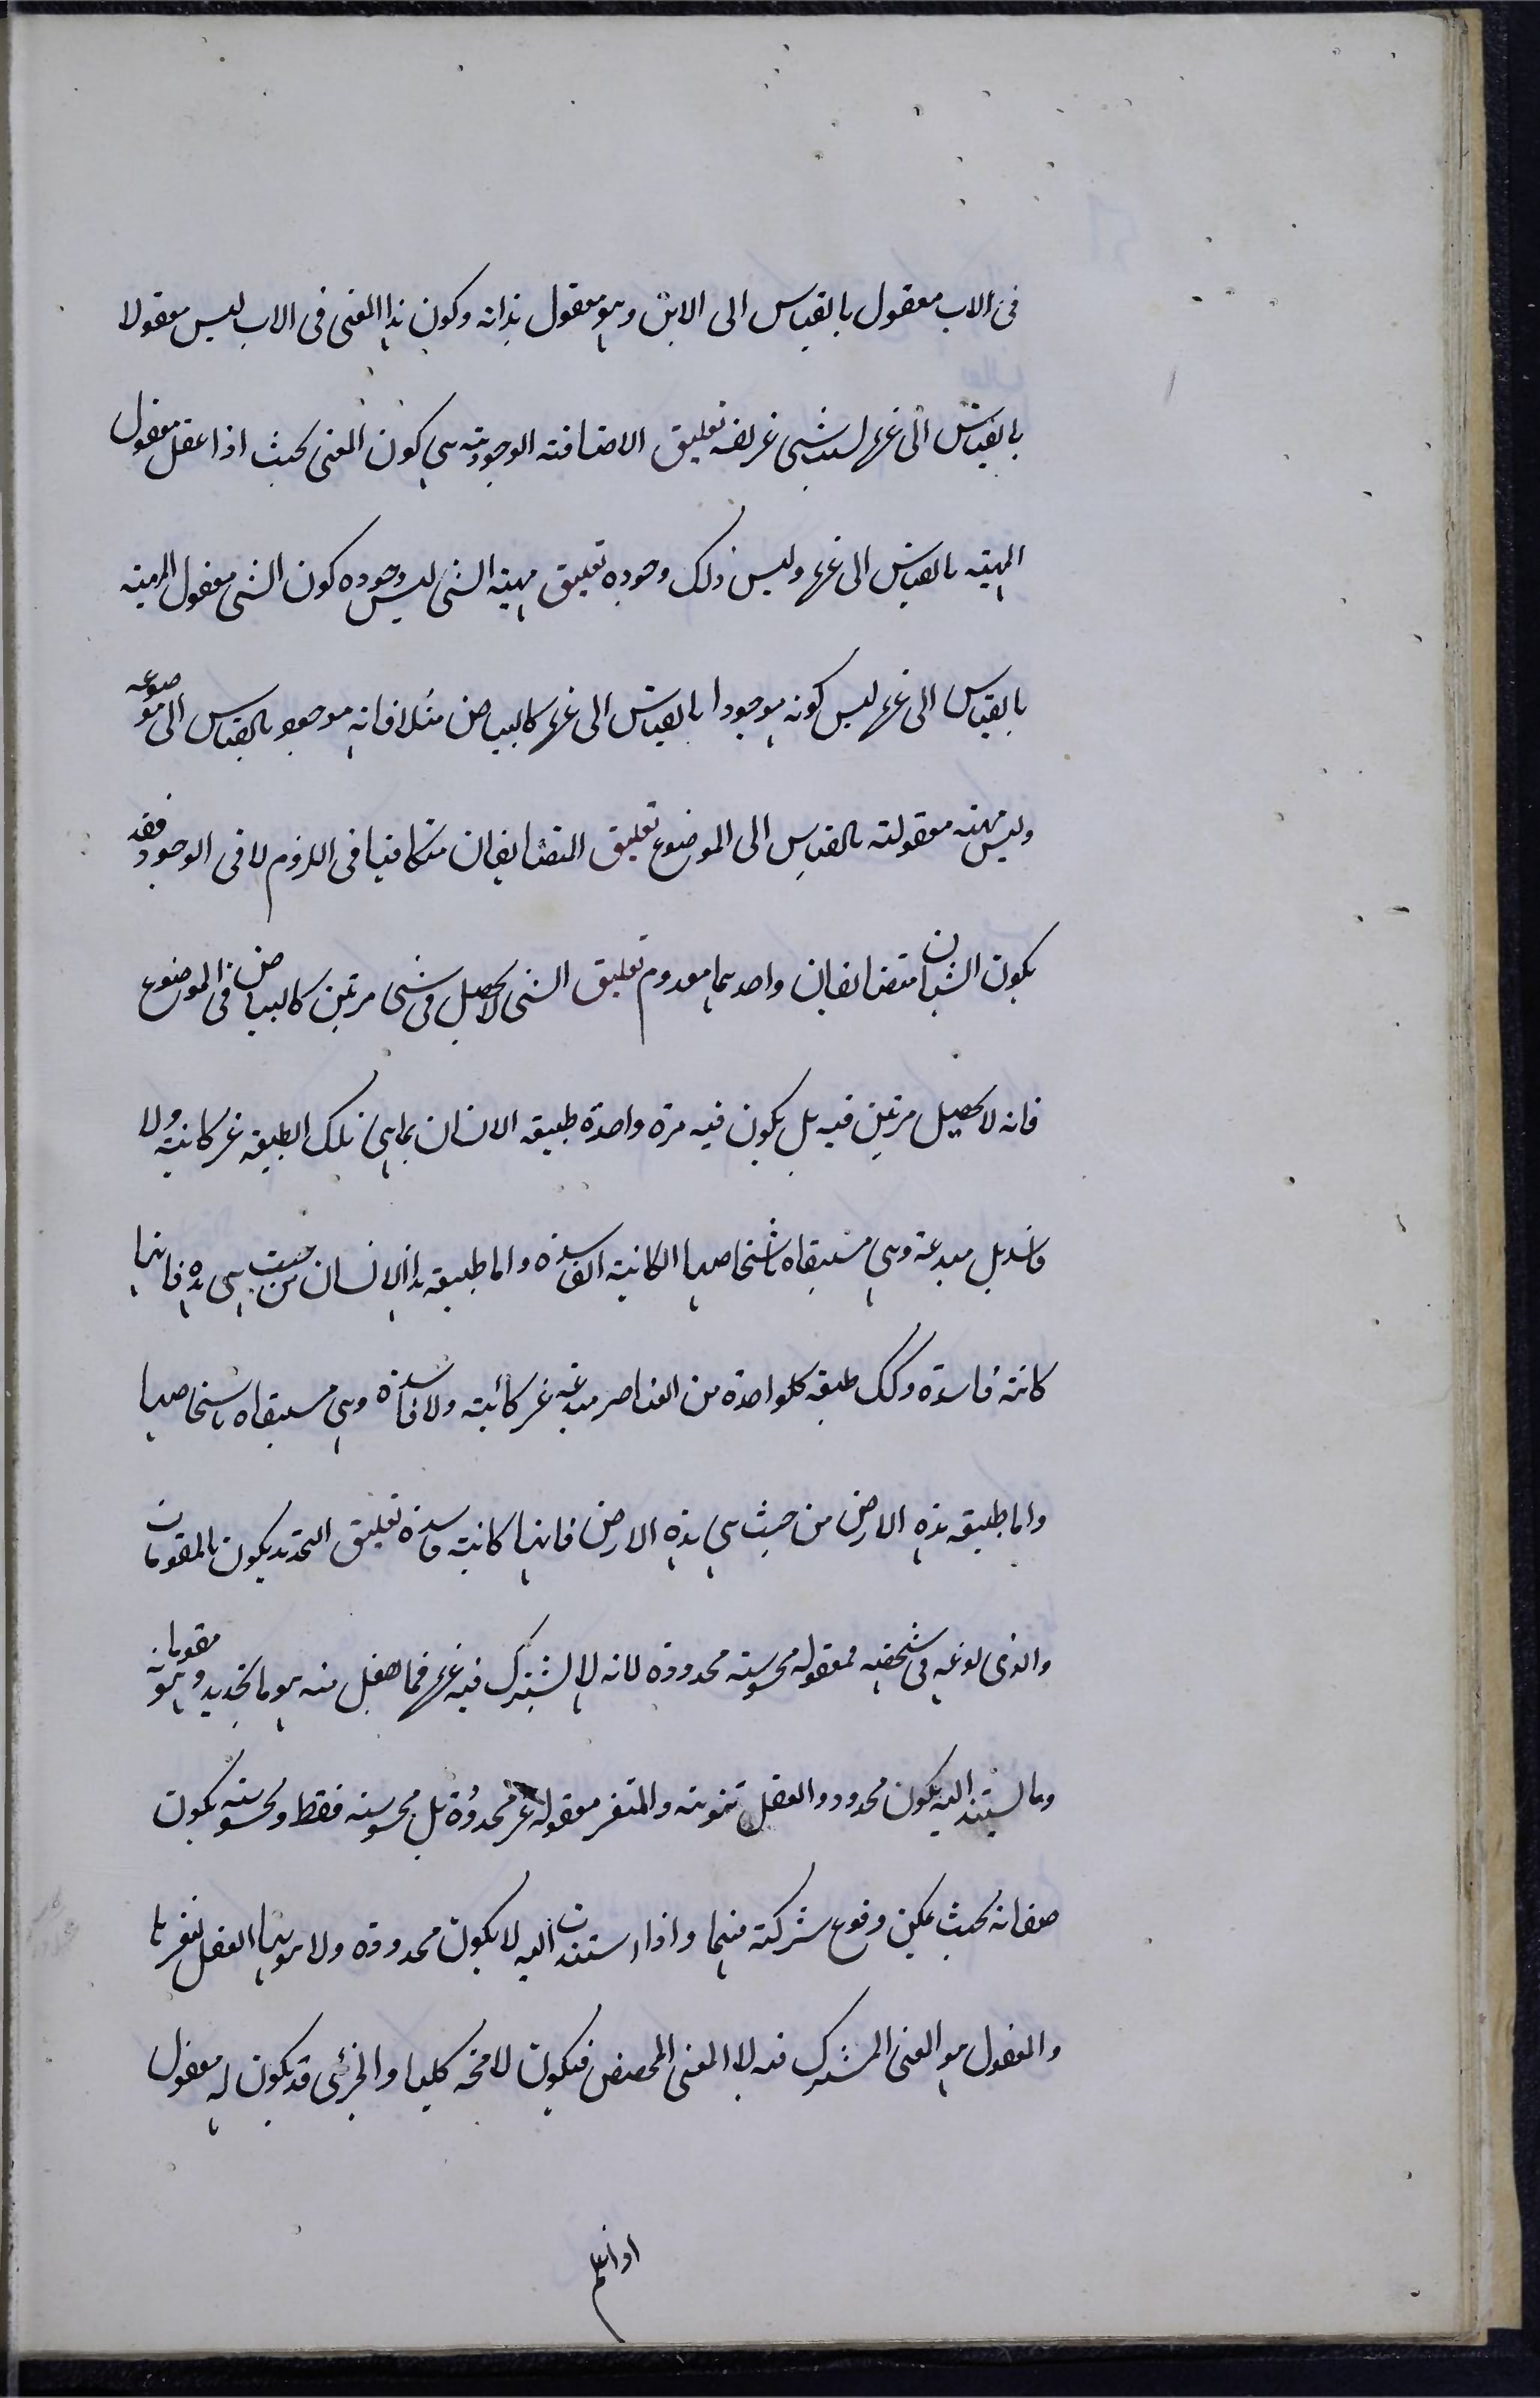 فى الاب معقول بالقياس الى الابن وهو معقول بذاته وكون هذا المعنى فى الاب ليس معقولا
بالقياس الى غيره لسبب شىء غريضه تعليق الاضافته الوجوديته هى كون المعنى بحيث اذا عقل معقول
المهيته بالقياس الى غيره وليس ذلك وجوده تعليق مهيته الشى ليس وجوده كون الشى معقول المهيته
بالقياس الى غيره ليس كونه موجودا بالقياس الى غيره كالبياض مثلا فانه موجود بالقياس الى موضوعه
وليس مهيته معقولته بالقياس الى الموضوع تعليق المتضايفان متكافيا فى اللزوم لا فى الوجود فقد
يكون الشيان متضايفان واحدهما معدوم تعليق الشى لا يحصل فى شى مرتين كالبياض فى الموضوع
فانه لا يحصل مرتين فيه بل يكون فيه مرة واحدة طبيعه الانسان بما هى تلك الطبيعه غير كاينة ولا
فاسد بل مبدعة وهى مستبقاه باشخاصها الكاينة الفاسدة واما طبيعه هذا الانسان من حيث هى هذه فانها
كاينة فاسدة وكك طبيعه كلواحدة من العناصر مبدعه غير كائنة ولا فاسدة وهى مستبقاه باشخاصها
واما طبيعه هذه الارض من حيث هى هذه الارض فانها كاينة فاسدة تعليق التحديد يكون بالمقومات
والذى نوعه فى شخصه فمعقوله محسوسته محدودة لانه لا يشترك فيه غيره فما حصل منه هو ما تحديده وهو مقوماته
وما يستند اليه يكون محدودو العقل تنوته والمتغير معقوله غير محدودة بل محسوسته فقط ومحسوسته يكون
صفاته بحيث يمكن وقوع شركة فيها واذا استندت اليه لا يكون محدودة ولا العقل يتغير بها
والمعقول هو المعنى المشترك فيه لا المعنى المخصص فيكون لا محه كليا والجزئى قد يكون له معقول